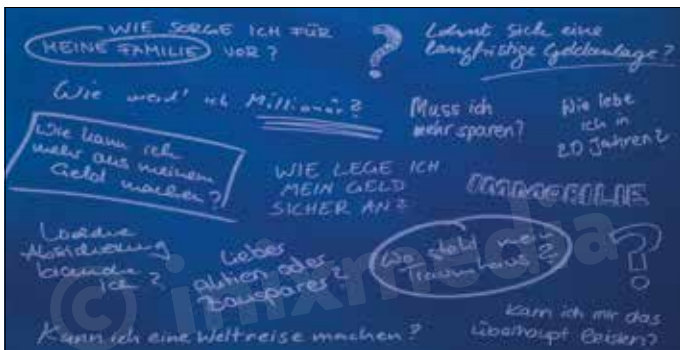 WIE SORGE ICH FÜR
MEINE FAMILIE VOR?
?
Lohnt sich eine
langfristige Geldanlage?
Wie werd' ich Millionär?
Muss ich
mehr sparen?
Wie lebe
ich in
20 Jahren?
Wie kann ich
mehr aus meinem
Geld machen?
WIE LEGE ICH
MEIN GELD
SICHER AN?
IMMOBILIE
Welche
Absicherung
brauche
ich?
Lieber
aktien oder
Bausparer?
Wo steht mein
Traumhaus?
?
Kann ich eine Weltreise machen?
Kann ich mir das
überhaupt leisten?
© imixmedia